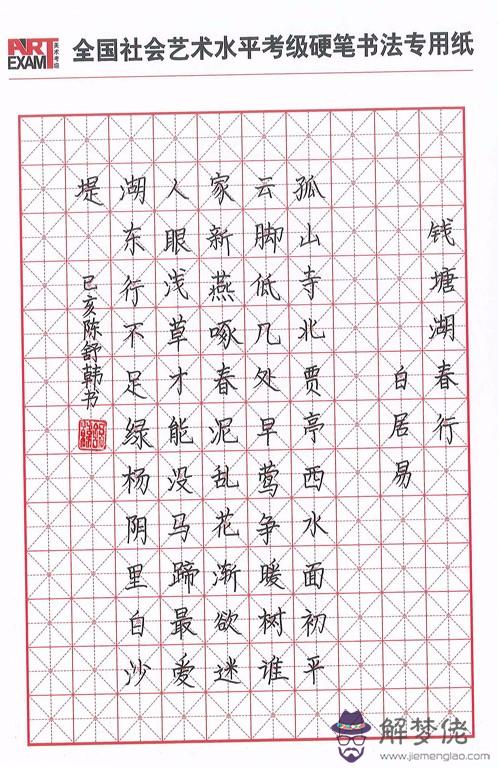 ART
EXAM
美术考级
全国社会艺术水平考级硬笔书法专用纸
钱塘湖春行
白居易
孤山寺北贾亭西水面初平
云脚低几处早莺争暖树谁
家新燕啄春泥乱花渐欲迷
人眼浅草才能没马蹄最爱
湖东行不足绿杨阴里白沙
堤
己亥陈舒韩书
解梦佬
www.jiemenglao.com